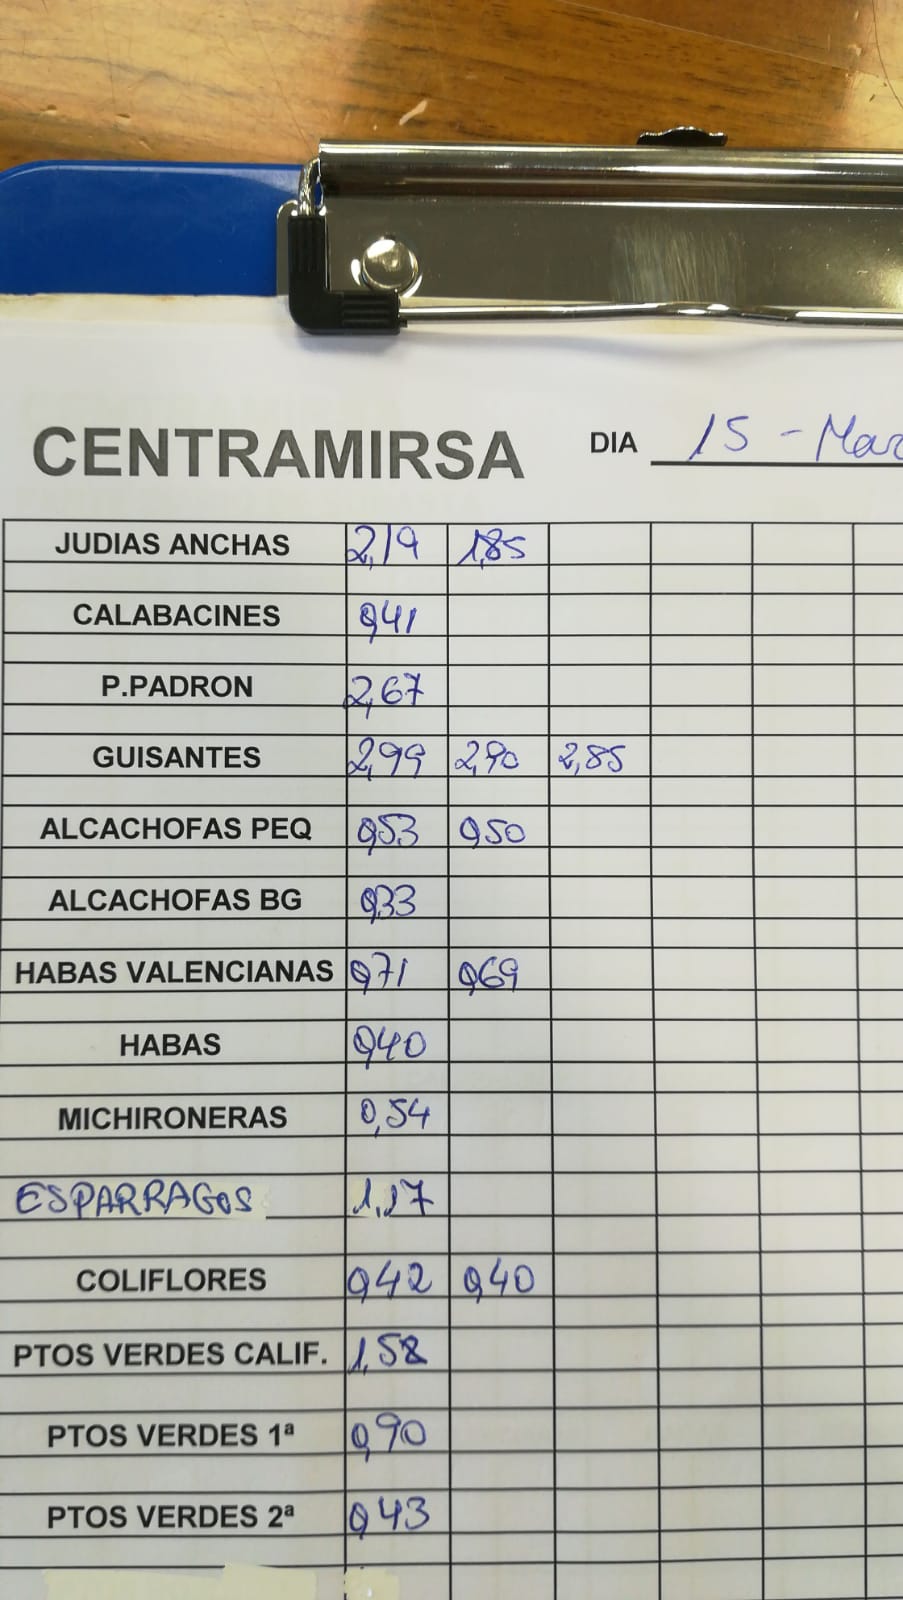 CENTRAMIRSA DIA 15 - Mar
JUDIAS ANCHAS 2,19 1,85
CALABACINES 0,41
P.PADRON 2,67
GUISANTES 2,99 2,90 2,85
ALCACHOFAS PEQ 0,53 0,50
ALCACHOFAS BG 0,33
HABAS VALENCIANAS 0,71 0,69
HABAS 0,40
MICHIRONERAS 0,54
ESPARRAGOS 1,17
COLIFLORES 0,42 0,40
PTOS VERDES CALIF. 1,58
PTOS VERDES 1ª 0,90
PTOS VERDES 2ª 0,43